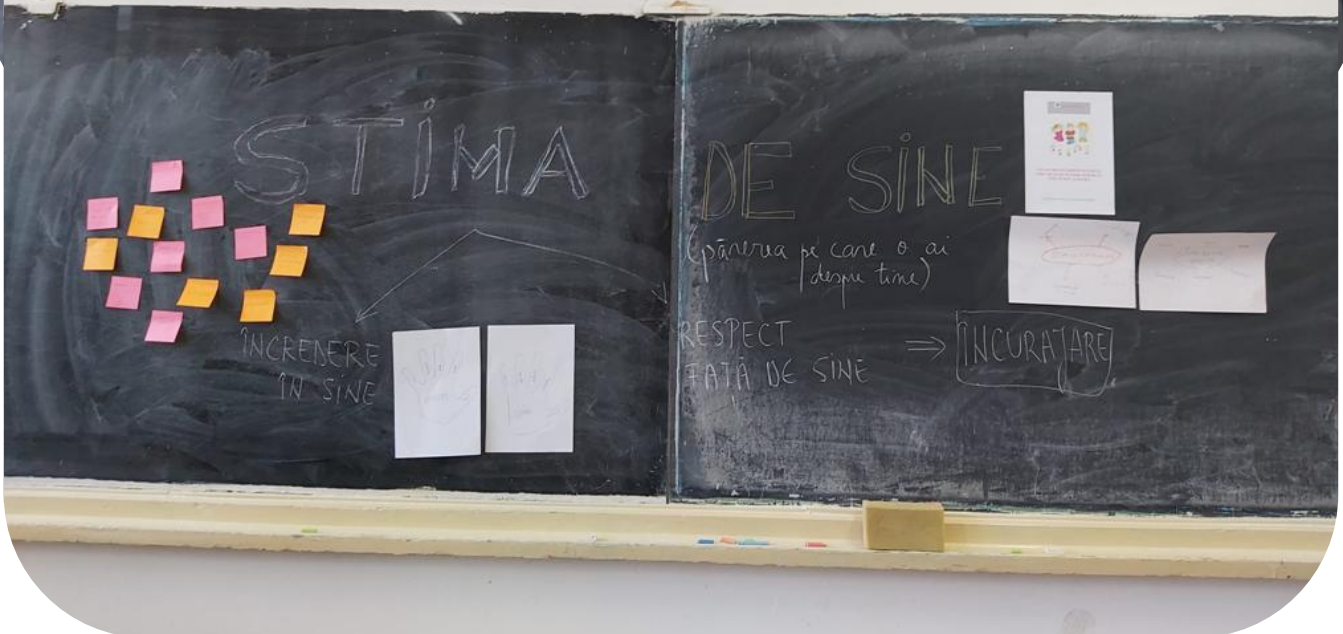 STIMA DE SINE
(părerea pe care o ai
despre tine)
ÎNCREDERE
ÎN SINE
RESPECT
FAȚĂ DE SINE ⇒ ÎNCURAJARE